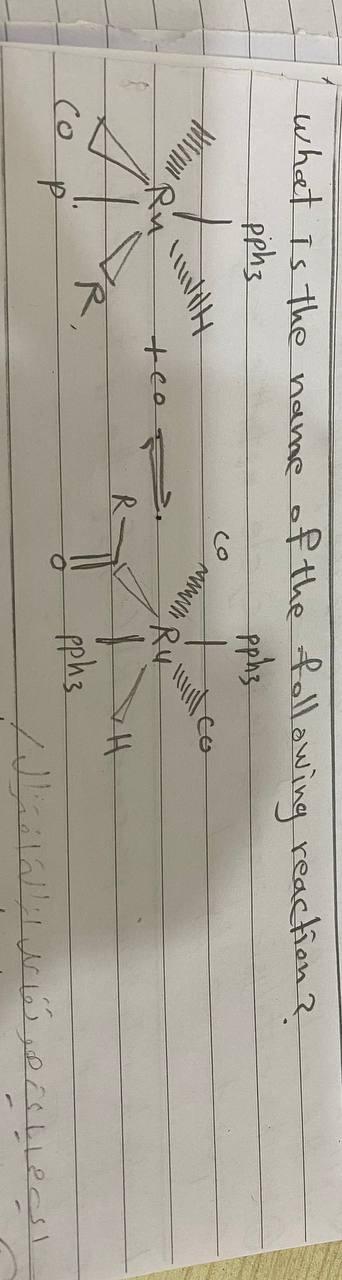 what is the name of the following reaction?
pph3
Ru
H
CO
P.
R.
+ CO ⇌
CO
pph3
Ru
CO
R
O
H
pph3